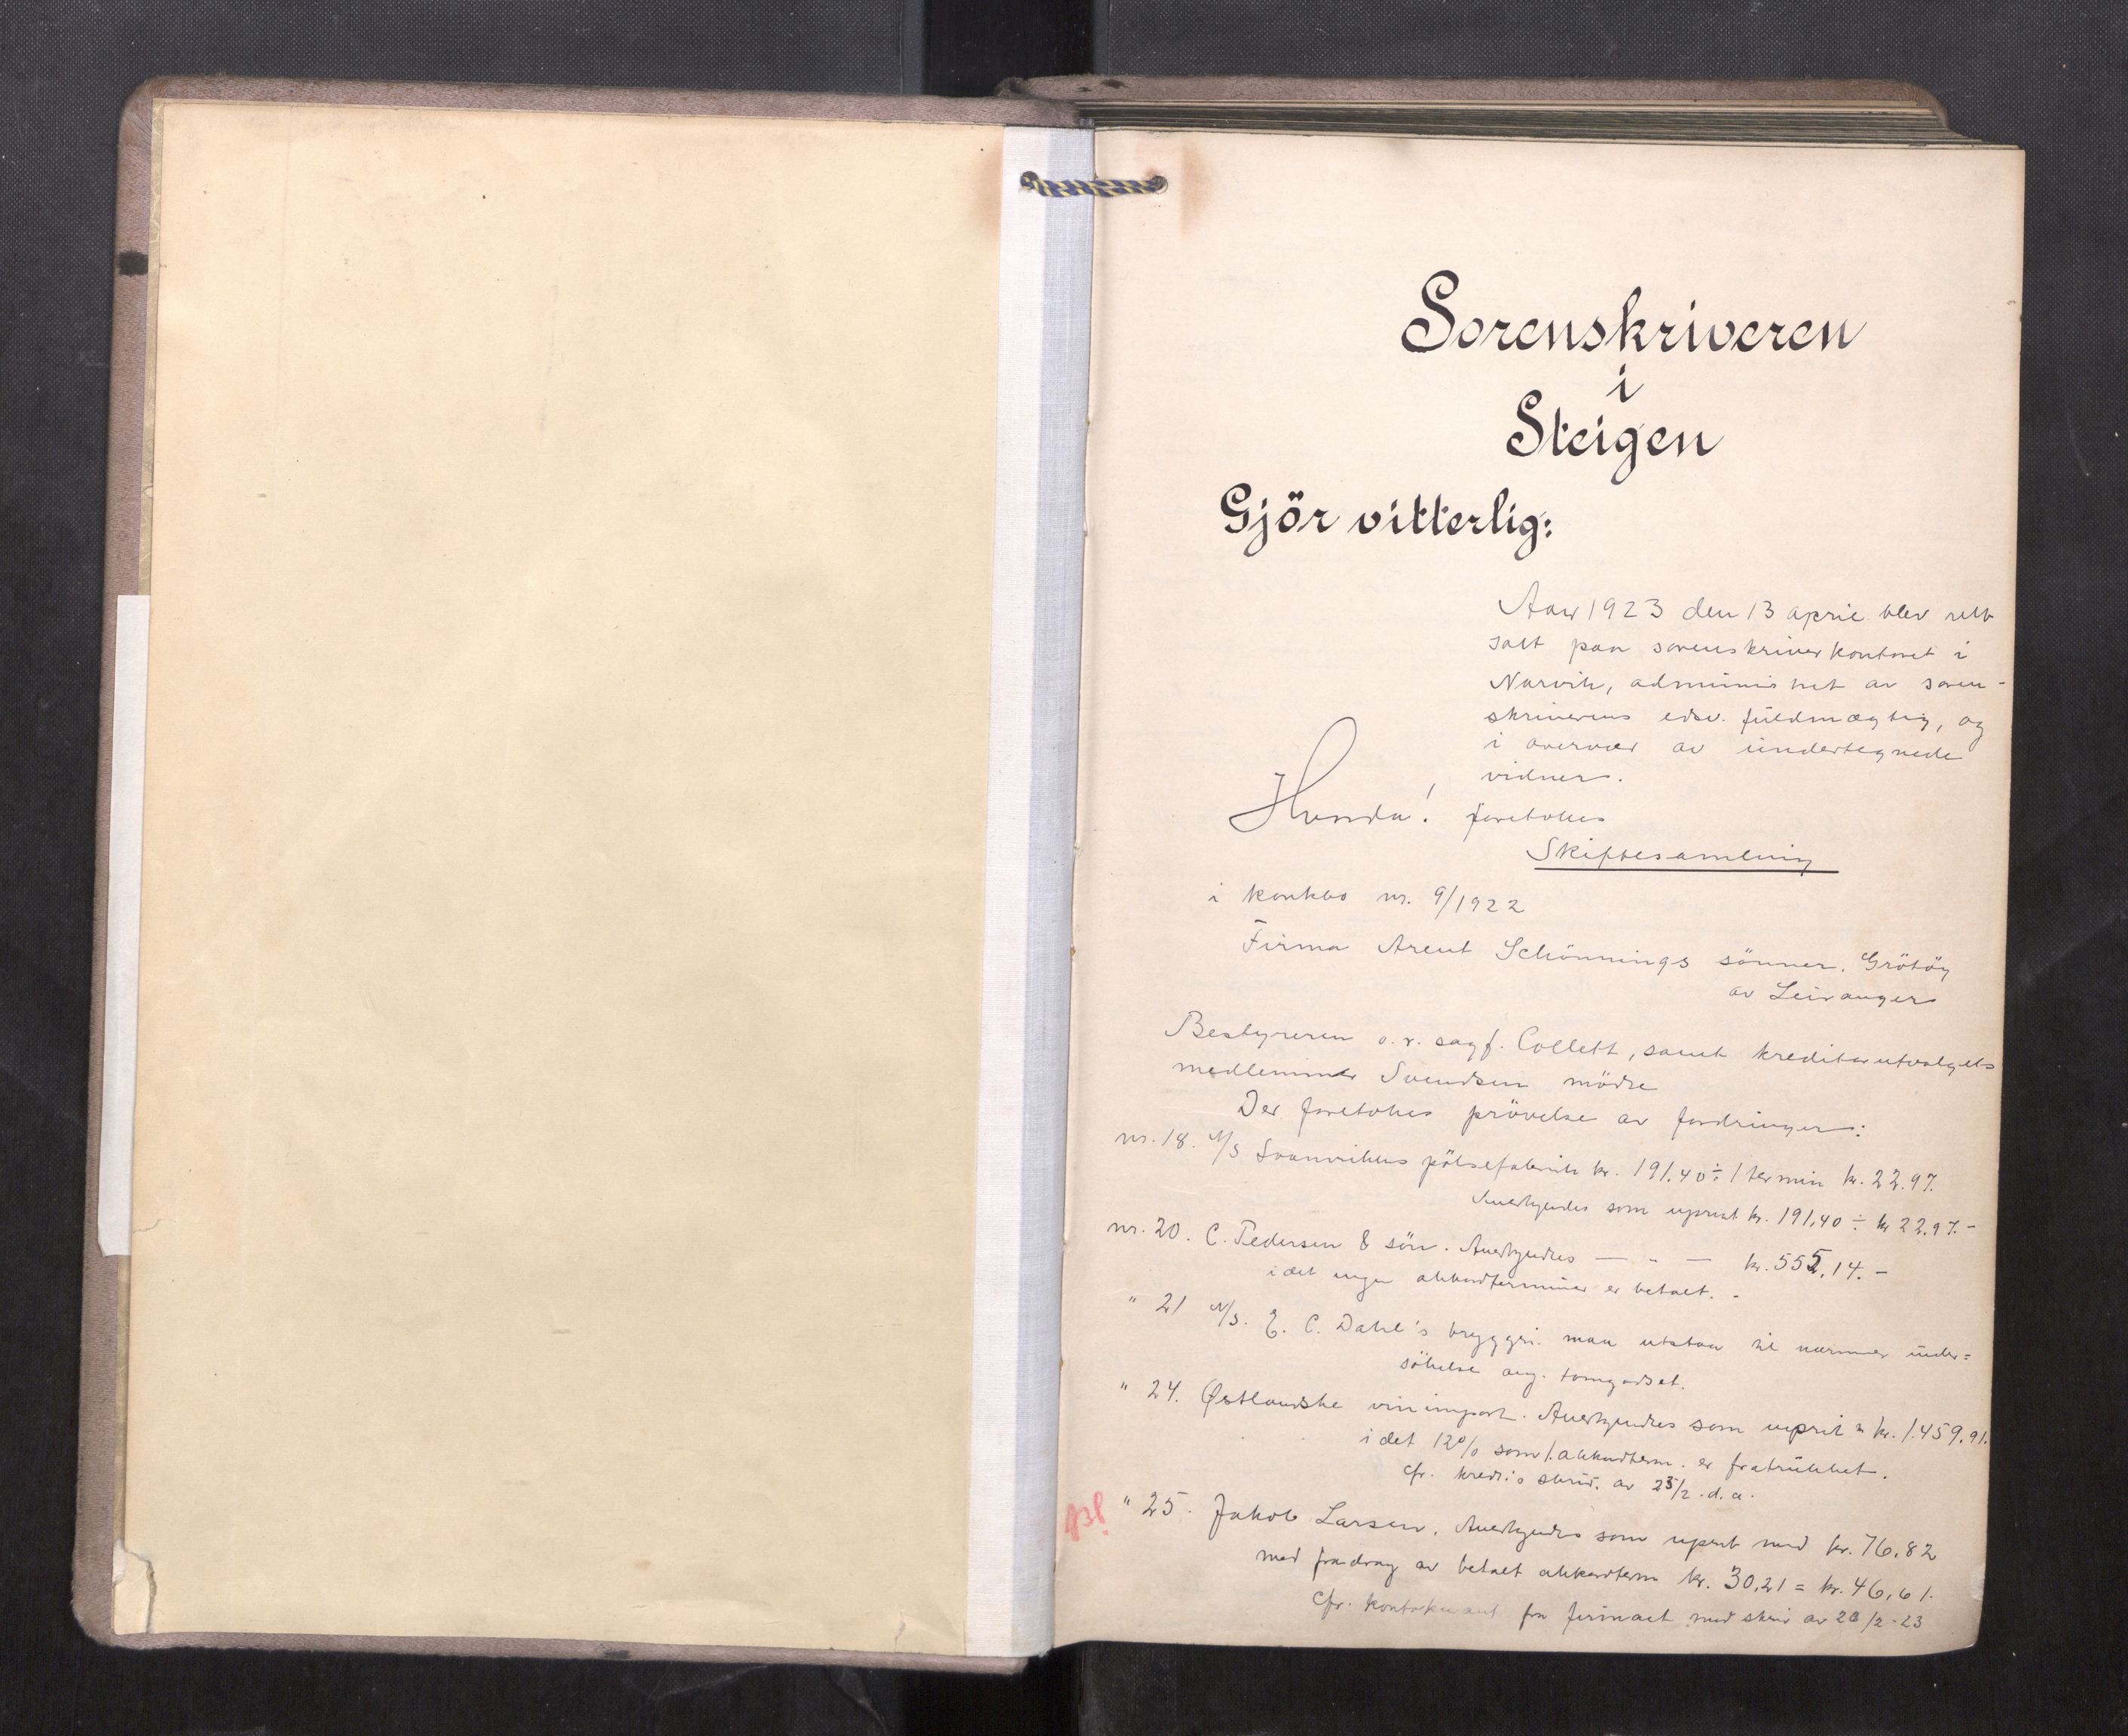 Sorenskriveren
i
Steigen
Gjör vitterlig:
Aar 1923 den 13 april blev rett
satt paa sorenskriverkontoret i
Narvik, administret av soren-
skriverens edsv. fuldmægtig, og
i overvær av undertegnede
vidner.
Hvorda! foretokes
Skiftesamling
i konkbo nr. 9/1922
Firma Arent Schönnings sönner. Grötöy
av Leiranger
Bestyreren o.r. sagf. Collett, samt kreditorutvalgets
medlemmer Svendsen mödte
Der foretokes prövelse av fordringer:
nr. 18. A/S Svanvikens pölsefabrik kr. 191.40 ÷ 1 termin kr. 22.97.
Anerkjendes som uprist kr. 191,40 ÷ kr 22.97.-
nr. 20. C. Pedersen & sön. Anerkjendes — " — kr. 555,14.-
i det ingen akkordterminer er betalt. -
" 21 A/S. E. C. Dahl's bryggri. maa utstaa til nærmere under=
sökelse ang. tomgodset.
" 24. Østlandske vinimport. Anerkjendes som uprist kr. 1.459.91.
i det 12% som 1. akkordterm. er fratrukket.
cfr. kred.s skriv. av 25/2 d.a.
" 25. Jakob Larsen. Anerkjendes som uprist med kr. 76.82
med fradrag av betalt akkordterm kr. 30,21 = kr. 46,61.
Cfr. kontokurant fra firmaet med skriv av 20/2-23